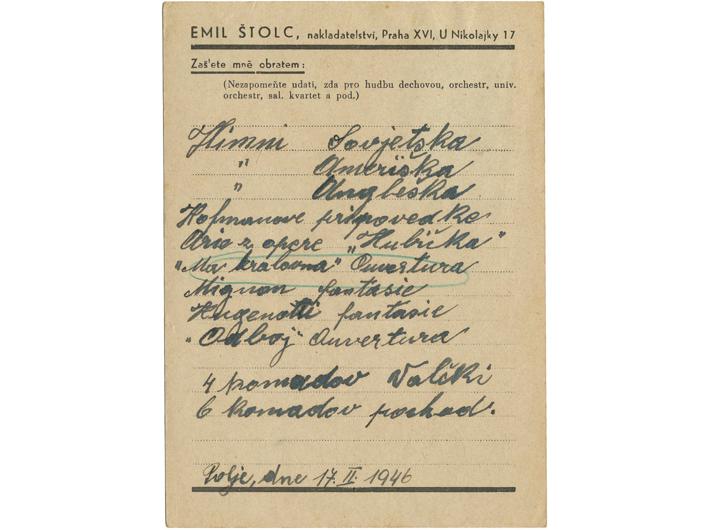 EMIL ŠTOLC, nakladatelství, Praha XVI, U Nikolajky 17
Zašlete mně obratem:
(Nezapomeňte udati, zda pro hudbu dechovou, orchestr, univ.
orchestr, sal. kvartet a pod.)
Himni Sovjetska
" Ameriška
" Angleška
Hofmanove pripovedke
Aria z opere „Hubička"
"Ma kralovna" Ouvertura
Mignon fantasie
Hugenotti fantasie
"Odboj" Ouvertura
4 komadov Valčki
6 komadov pochod.
Polje, dne 17. II. 1946